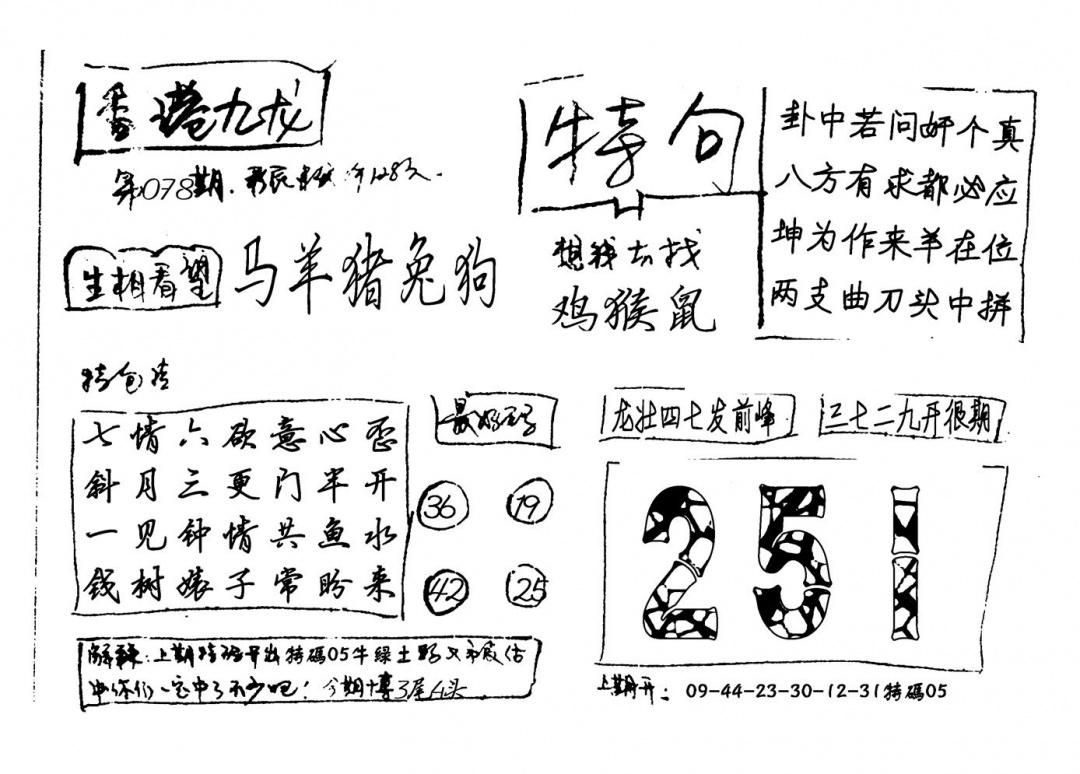 香港九龙
第078期.
生相看望
马羊猪兔狗
特句
想我去找
鸡猴鼠
卦中若问好个真
八方有求都必应
坤为作来羊在位
两支曲刀头中拼
特包
七情六欲意心歪
斜月三更门半开
一见钟情共鱼水
钱树婊子常盼来
最好
36
19
42
25
龙壮四七发前峰
三七二九开很期
251
上期 开出特碼05牛绿土
中你们一定中了不少吧！今期博3尾4头
上期开: 09-44-23-30-12-31特碼05